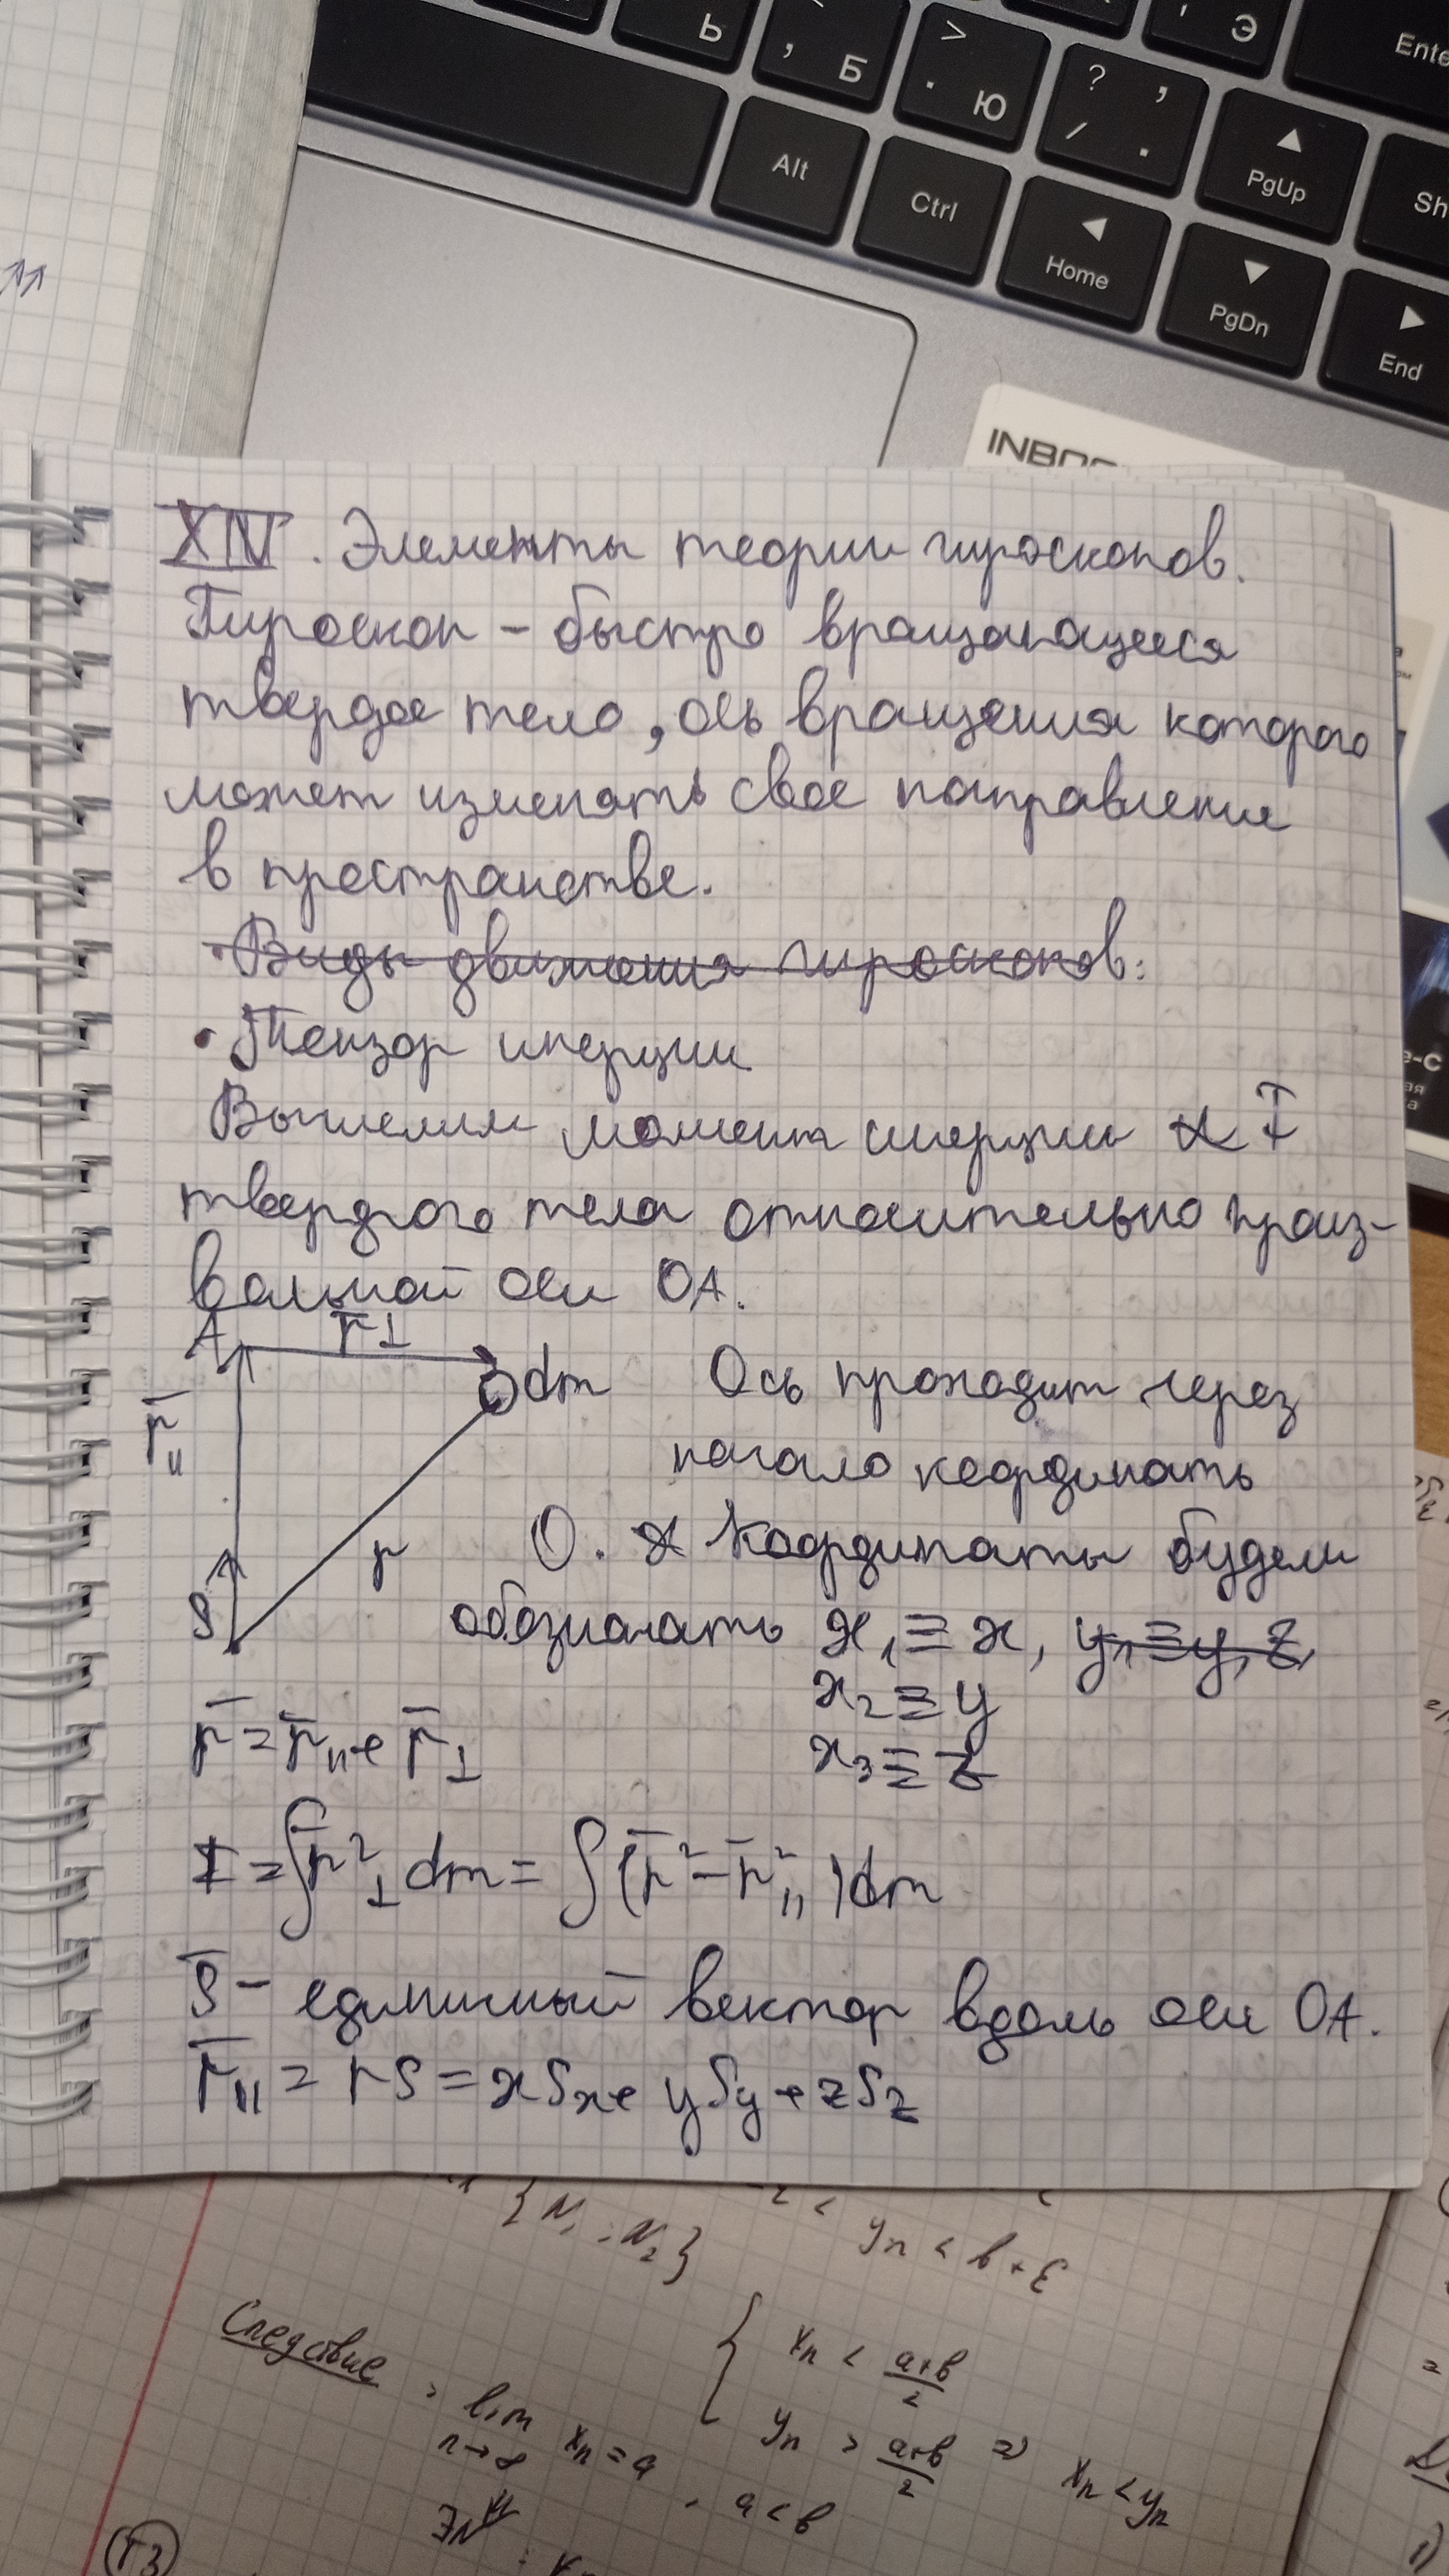 Ь
, Б
> . Ю
? , / .
' Э
Enter
Alt
Ctrl
PgUp
Sh
Home
PgDn
End
INBO
XIV. Элементы теории гироскопов.
Гироскоп – быстро вращающееся
твердое тело, ось вращения которого
может изменять свое направление
в пространстве.
Виды движения гироскопов:
• Тензор инерции
Вычислим момент инерции I
твердого тела относительно произ-
вольной оси OA.
A r̅⊥
dm Ось проходит через
r̅∥
начало координать
O. Координаты будем
r
S обозначать x₁ ≡ x, y₁ ≡ y, z,
x₂ ≡ y
r̅ = r̅∥ + r̅⊥
x₃ ≡ z
I = ∫ r̅²⊥ dm = ∫ (r̅² – r̅²∥) dm
S̅ – единичный вектор вдоль оси OA.
r̅∥ = rS = xSx + ySy + zSz
{N₁; N₂}
yn < b + ε
Следствие
lim xn = a, a < b
n→∞
{ xn < (a+b)/2
yn > (a+b)/2 ⇒ xn < yn
∃N
T3